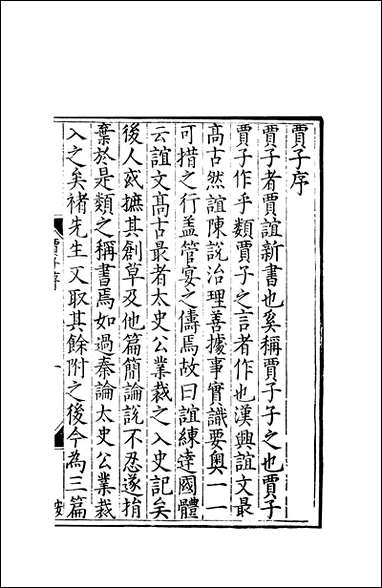 賈子序
賈子者賈誼新書也奚稱賈子子之也賈子
賈子作乎類賈子之言者作也漢興誼文最
高古然誼陳說治理善據事實識要奧一一
可措之行盖管宴之儔焉故曰誼練達國體
云誼文高古最者太史公業裁之入史記矣
後人或摭其創草及他篇簡論說不忍遂捐
棄於是類之稱書焉如過秦論太史公業裁
入之矣褚先生又取其餘附之後今為三篇
賈子序